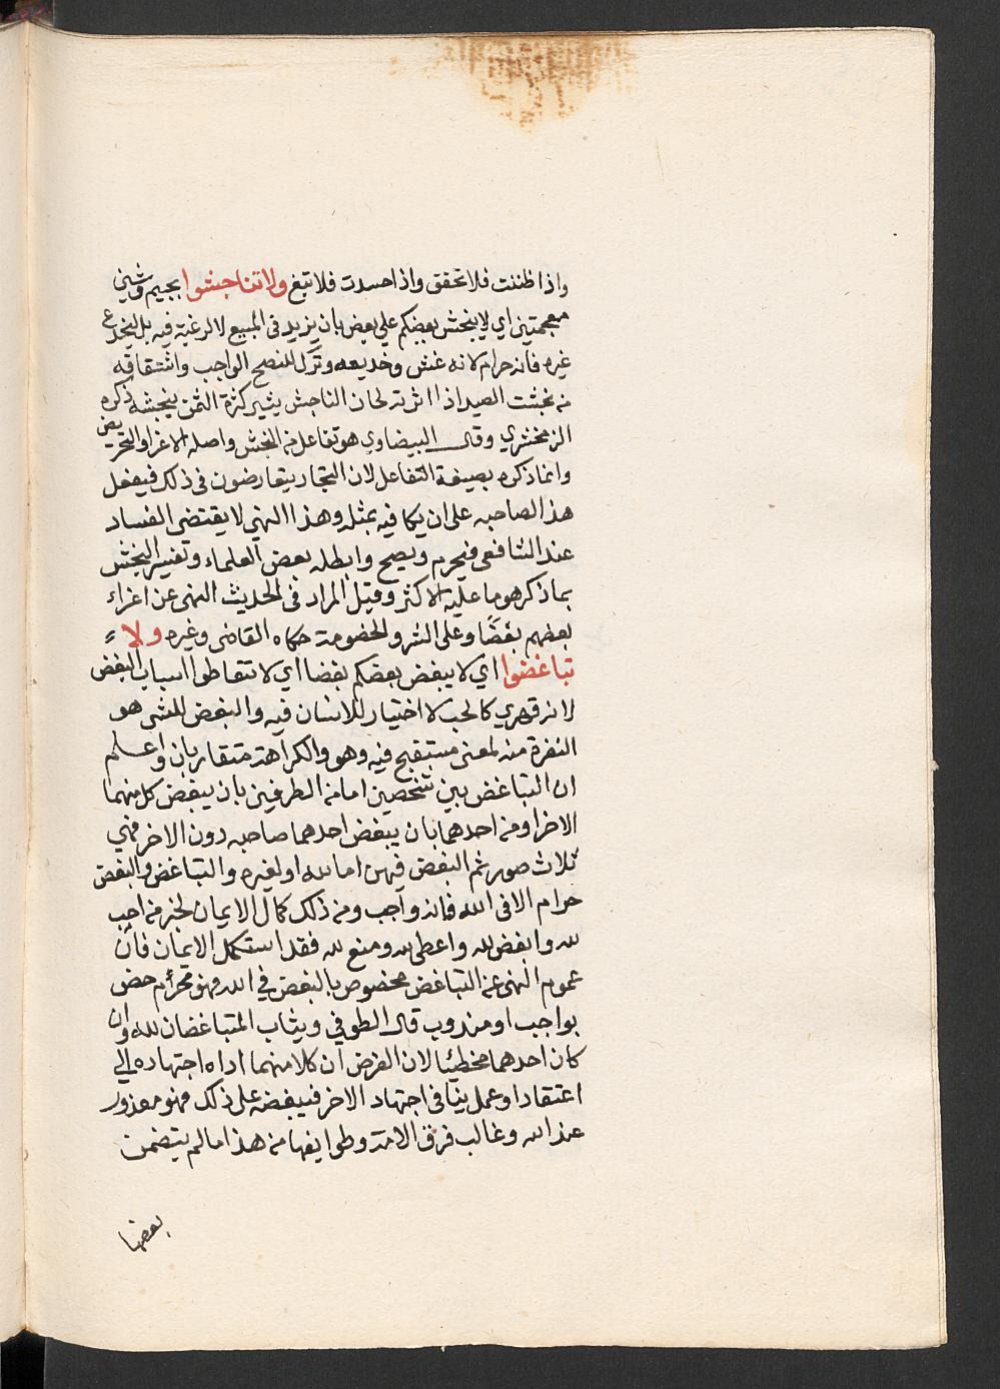 واذا ظننت فلا تحقق واذا حسدت فلا تبغ ولا تناجشوا بجيم وشين
معجمتين اي لا ينجش بعضكم علي بعض بان يزيد في المبيع لا لرغبة فيه بل ليخدع
غيره فانه حرام لانه غش وخديعه وترك للنصح الواجب واشتقاقه
من نجشت الصيد اذا اثرته لان الناجش يثير كثرة الثمن بنجشه ذكره
الزمخشري وقال البيضاوي هو تفاعل من النجش واصله الاغرا والتحريض
وانما ذكره بصيغة التفاعل لان التجار يتعارضون في ذلك فيفعل
هذا لصاحبه على ان يكافيه بمثله وهذا النهي لا يقتضى الفساد
عند الشافعى فيحرم ويصح وابطله بعض العلماء وتفسير النجش
بما ذكر هو ما عليه الاكثر وقيل المراد فى الحديث النهى عن اغراء
بعضهم بعضا وعلى الشر والخصومة حكاه القاضى وغيره ولا
تباغضوا اي لا يبغض بعضكم بعضا اي لا تتعاطوا اسباب البغض
لانه قهري كالحب لا اختيار للانسان فيه والبغض للشى هو
النفرة منه لمعنى مستقبح فيه وهو والكراهة متقاربان واعلم
ان التباغض بين شخصين اما من الطرفين بان يبغض كل منهما
الاخر او من احدهما بان يبغض احدهما صاحبه دون الاخر فهي
ثلاث صور ثم البغض فيهن اما لله او لغيره والتباغض والبغض
حرام الا فى الله فانه واجب ومن ذلك كمال الايمان لخبر من احب
لله وابغض لله واعطى لله ومنع لله فقد استكمل الايمان فان
عموم النهى عن التباغض مخصوص بالبغض في الله فهو محرم خص
بواجب او مندوب قال الطوفي ويثاب المتباغضان لله وان
كان احدهما مخطئا لان الفرض ان كلا منهما اداه اجتهاده الي
اعتقاد او عمل ينافى اجتهاد الاخر فيبغضه على ذلك فهو معذور
عند الله وغالب فرق الامة وطوايفها من هذا ما لم يتضمن
بعضها